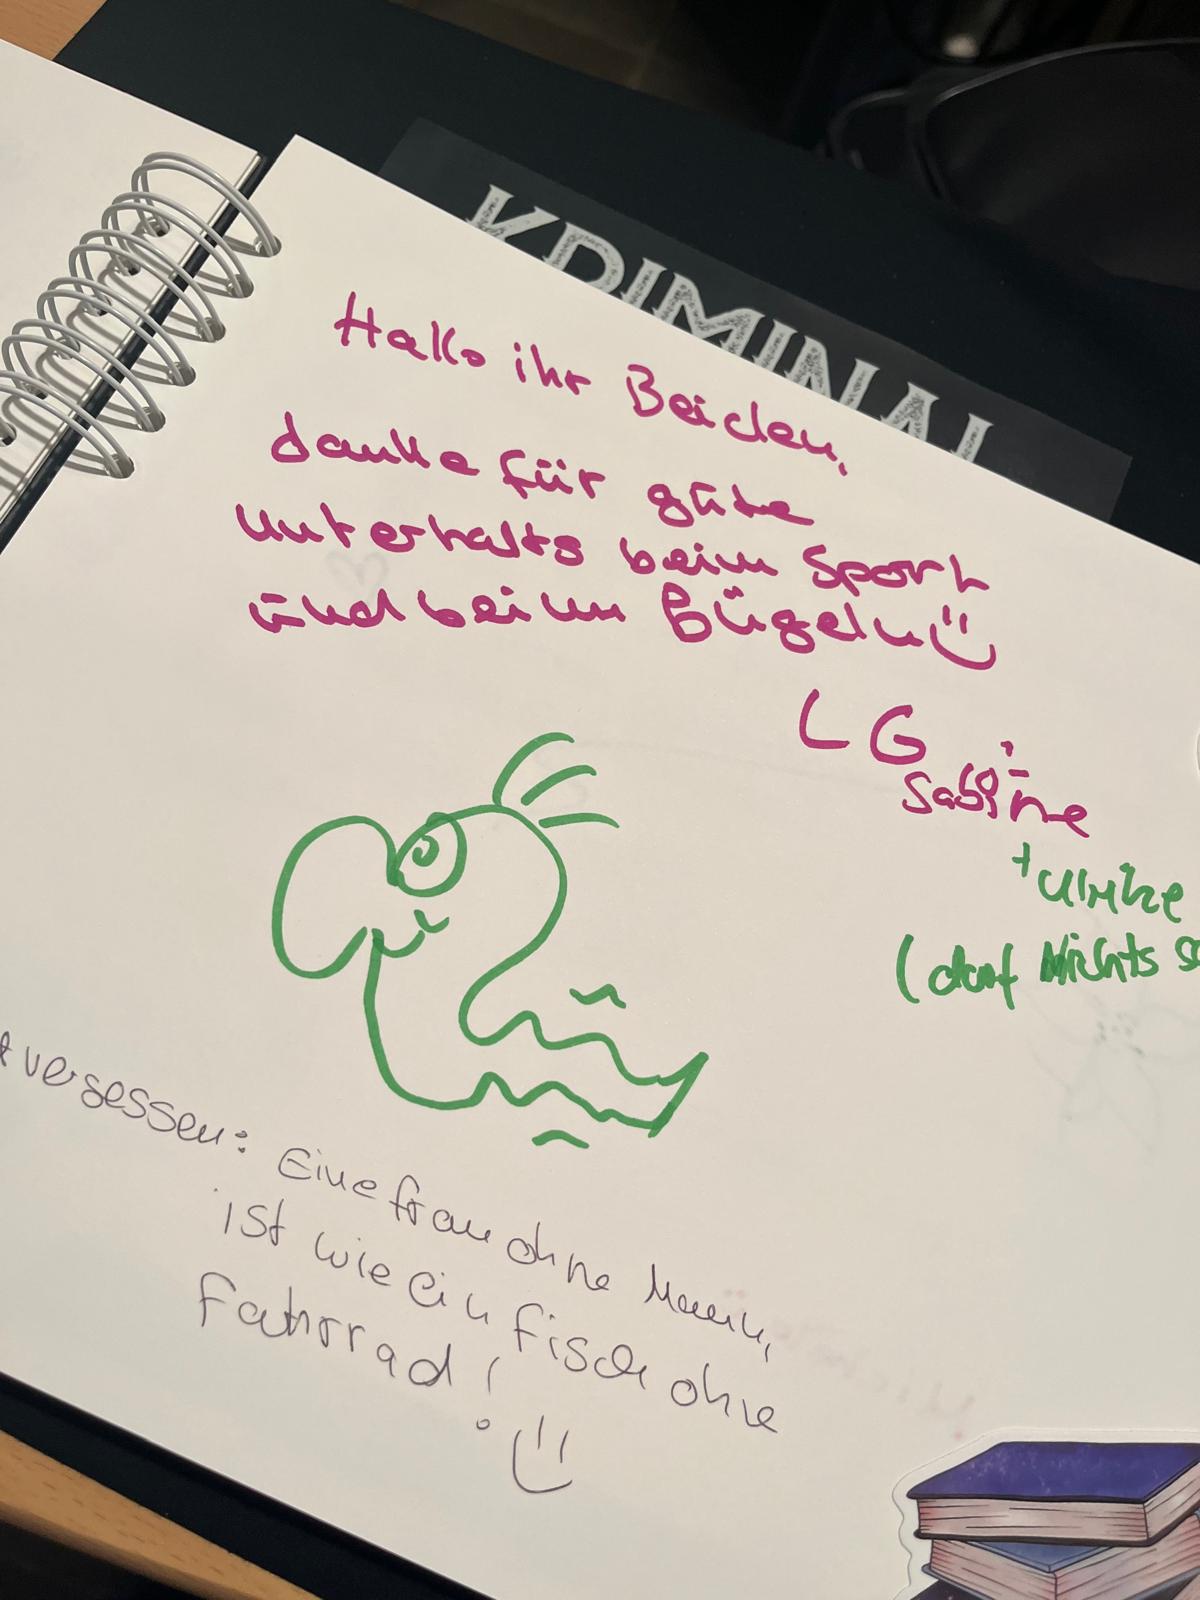 KRIMINAL
Hallo ihr Beiden,
danke für gute
unterhaltg beim Sport
und beim Bügeln
LG
Sabine
+ Ulrike
(darf Nichts
vergessen: Eine frau ohne Mann,
ist wie ein fisch ohne
fahrrad!